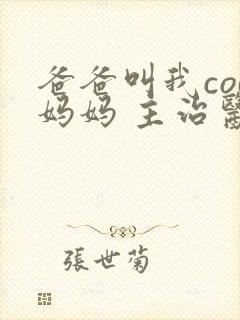 爸爸叫我co
妈妈 主治
張世菊